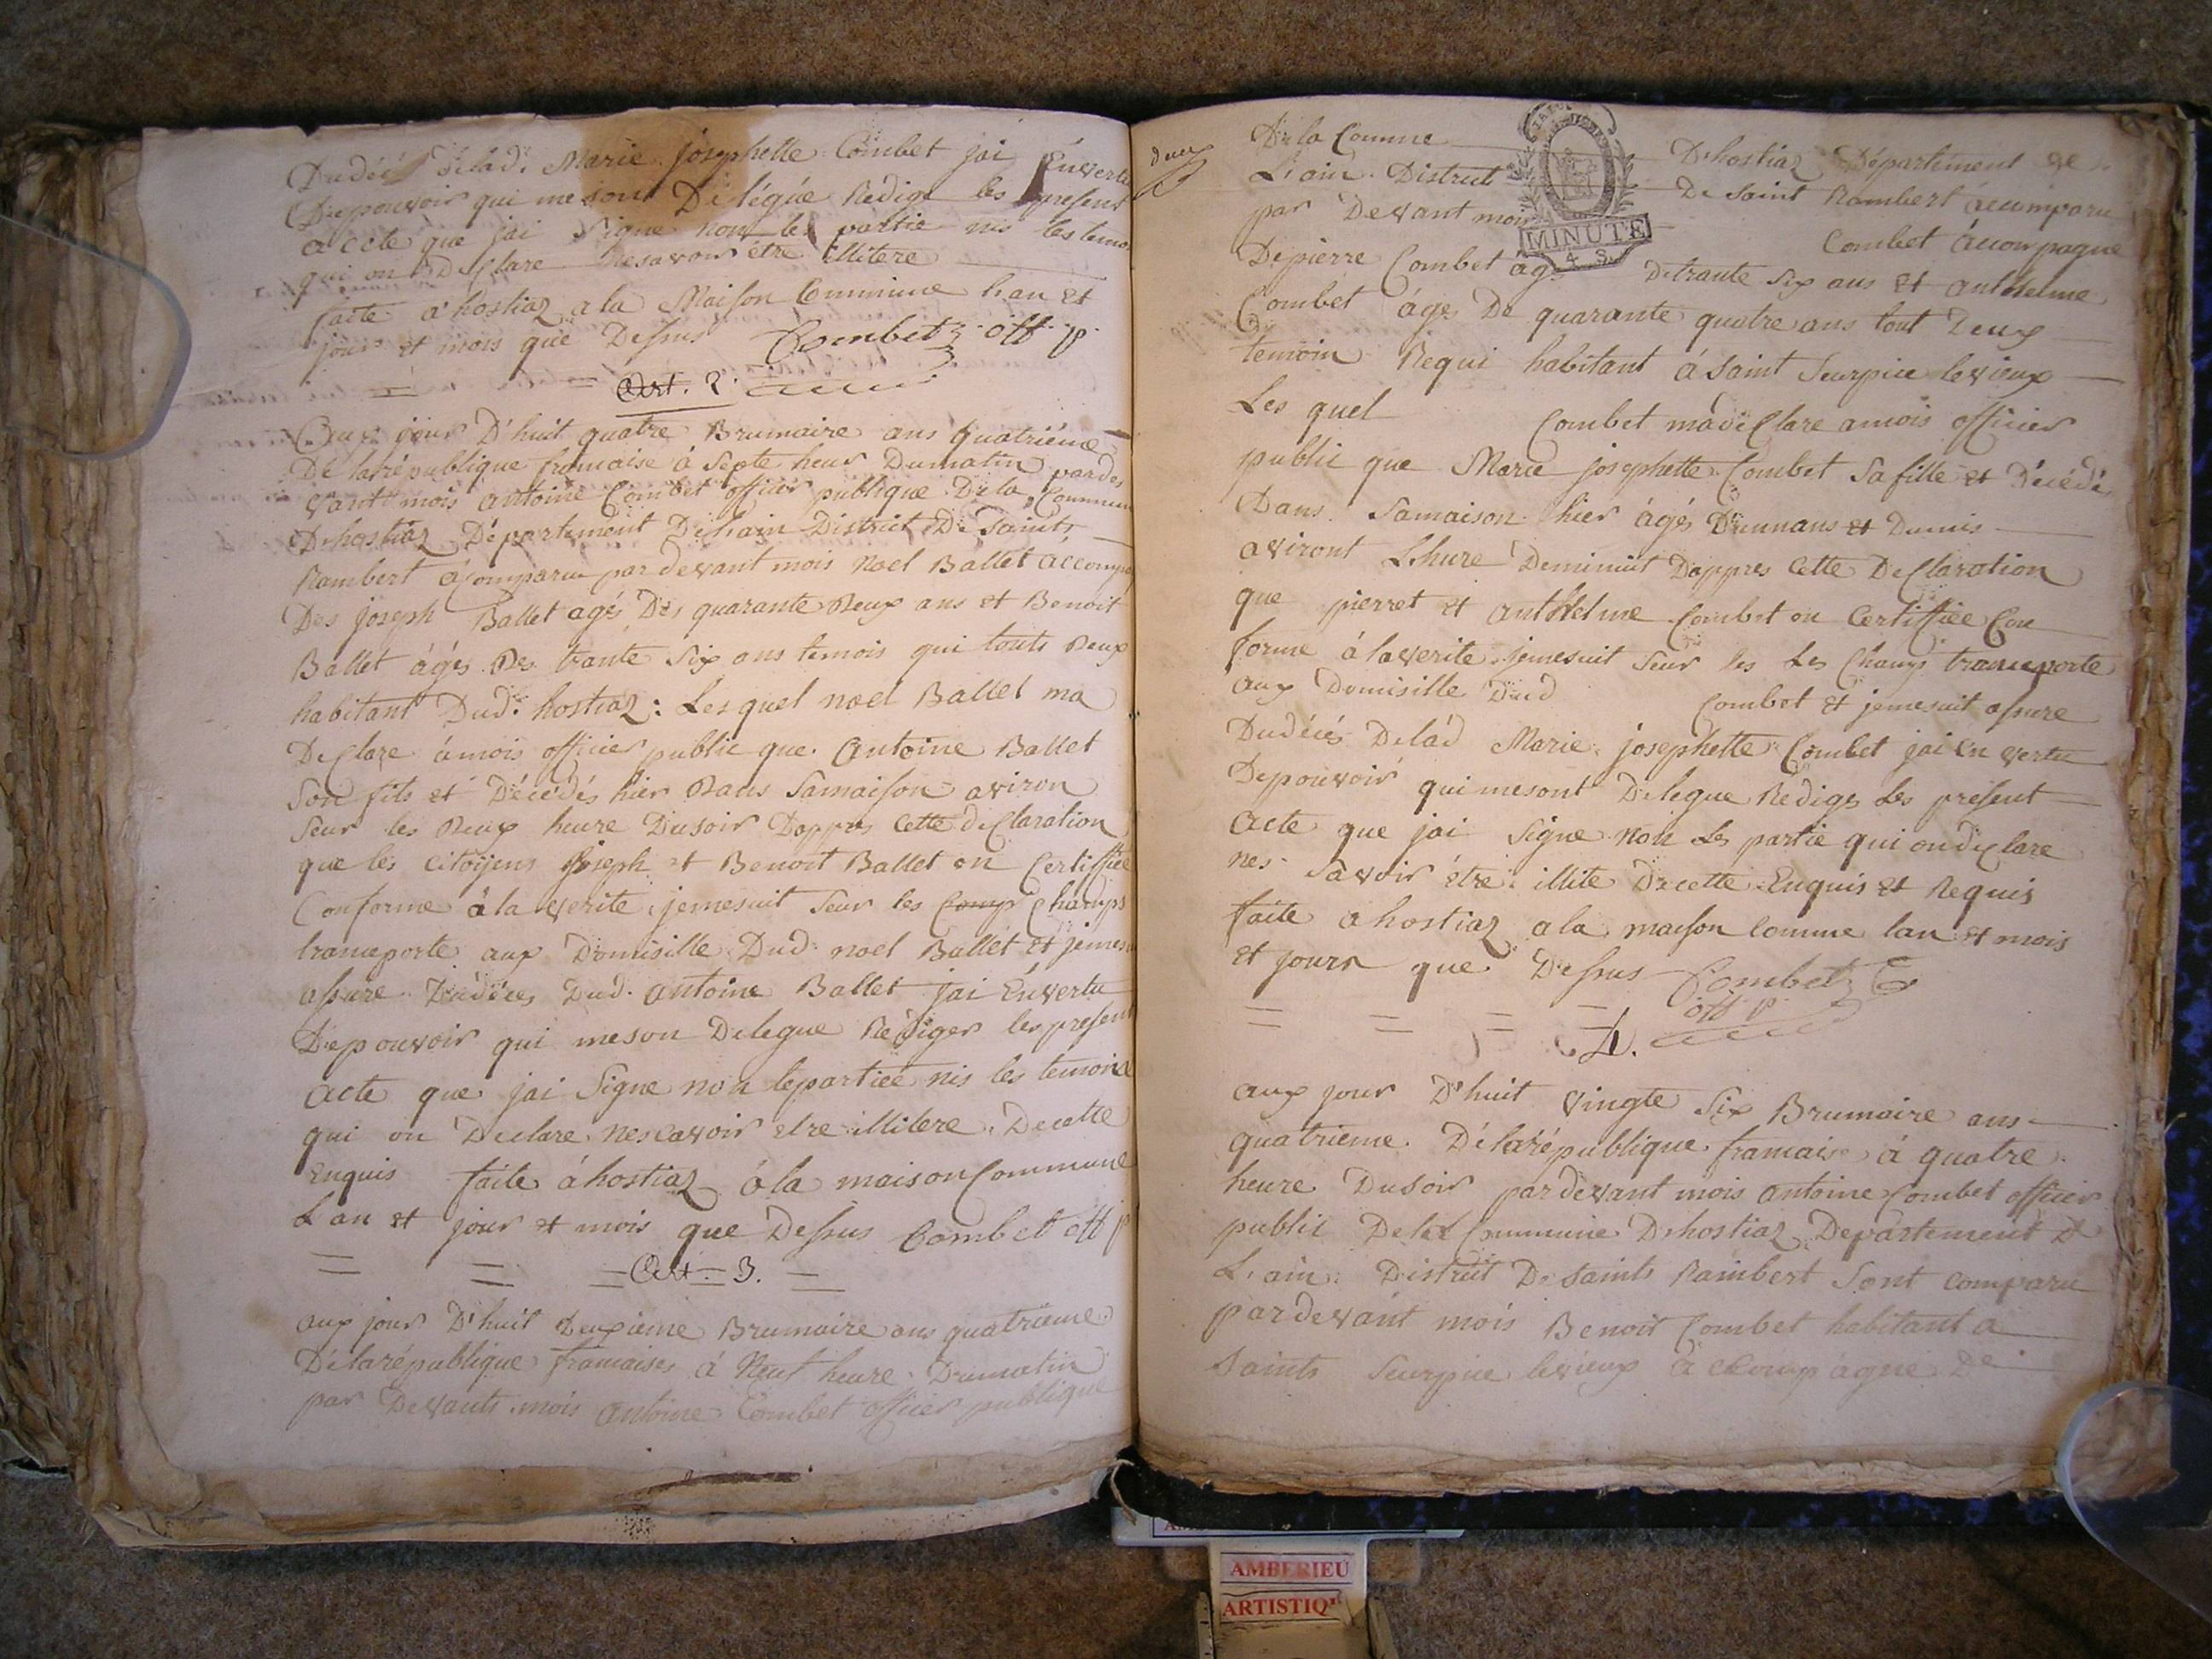 Dudécé Delad. Marie josephette Combet jai Envertu
Depouvoir qui me sont Délégúe Rédige les present
accte que jai Signe non les partie nis les temo
qui on Declare nesavoir être illitere
faite a hostiaz a la Maison Commune l'an et
jour et mois que Dessus Combet off p
Art. 2.
Aux jour D'huit quatre Brumaire ans quatriéme
De larépublique francaise à Septe heur Dumatin pardes
vant mois antoine Combet officier publique Dela Commun
D'hostiaz Département De Lain District De Saints
Rambert acomparu par devant mois Noel Ballet accomp
Des joseph Ballet agés Des quarante Deux ans et Benoit
Ballet ágés Des trante Six ans temois qui touts Deux
habitant Dud. hostiaz: Lesquel noel Ballet ma
DeClare amois officier public que Antoine Ballet
Son fils et Décédés hier Dans Samaison aviron
Seur les Deux heure Dusoir Dappres Cette deClaration
que les citoÿens joseph et Benoit Ballet on Certiffiée
Conforme à la verite jemesuit Seur les Comp Champs
tranceporte aux Domisille Dud. noel Ballet et jemes
assure Dudéces Dud. antoine Ballet jai Envertu
Depouvoir qui meson Delegue Rediger les present
acte que jai Signe non lepartiée nis les temoins
qui on Declare nescavoir etre illitere Decette
Enquis faite áhostiaz á la maison Commune
Lan et jour et mois que Dessus Combet off p
Art. 3.
aux jour D'huit Deuxieme Brumaire ans quatrieme
Délarépublique francaises à Neuf heure Dumatin
par Devants mois antoine Combet officier publique
deux
De la Comune D'hostiaz Département de
L'ain District De Saint Rambert acomparu
par Devant mois Combet áccompagne
MINUTE
4 S.
Depierre Combet ag Detrante Six ans et anthelme
Combet áges De quarante quatre ans tout Deux
temoin Requi habitant á Saint Seurpice levieux
Les quel Combet madéClare amois officier
public que Marie josephette Combet Sa fille et Décédé
Dans Samaison hier ágés D'unnans et Dumis
aviront Lhure Deminuit Dappres Cette DeClaration
que pierret et anthelme Combet on Certiffiée Con
forme á laverite jemesuit Seur les Les Champs tranceporte
aux Domisille Dud Combet et jemesuit assure
Dudécés Delád Marie josephette Combet jai En vertu
Depouvoir quimesont Delegue Rediges Les present
acte que jai Signe non Les partie qui ondeClare
nes Savoir étre illite Decette Enquis et Requis
faite a hostiaz a la maison Comune lan et mois
et jours que Dessus Combet
off p
4.
aux jour D'huit vingte Six Brumaire ans
quatrieme Délarépublique francaise á quatre
heure Dusoir pardevant mois antoine Combet officier
public De la Commune D'hostiaz Departement d
L'ain District De Saints Rambert Sont comparu
pardevant mois Benoit Combet habitant a
Saints Seurpice levieux acCompágne De
AMBERIEU
ARTISTIQ